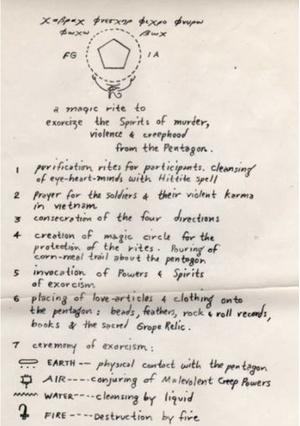 FG
IA
a magic rite to
exorcize the Spirits of murder,
violence & creephood
from the Pentagon.
1 purification rites for participants. Cleansing
of eye-heart-minds with Hittite spell
2 prayer for the soldiers & their violent karma
in vietnam
3 consecration of the four directions
4 creation of magic circle for the
protection of the rites. Pouring of
corn-meal trail about the pentagon
5 invocation of Powers & Spirits
of exorcism
6 placing of love-articles & clothing onto
the pentagon: beads, feathers, rock & roll records,
books & the sacred Grope Relic.
7 ceremony of exorcism:
EARTH --- physical contact with the pentagon
AIR---- conjuring of Malevolent Creep Powers
WATER---- cleansing by liquid
FIRE ---- Destruction by fire